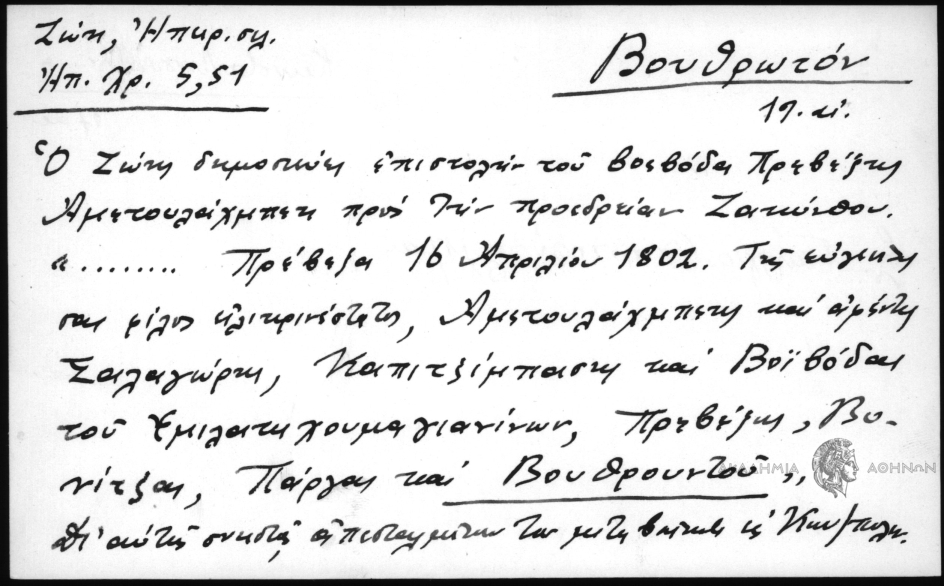 Ζώτη, Ἠπειρ. σελ.
Ἠπ. Χρ. 5,51
Βουθρωτόν
19. αἰ.
Ὁ Ζώτης δημοσιεύει ἐπιστολὴν τοῦ βοεβόδα Πρεβέζης
Ἀμετουλάχμπεη πρὸς τὴν προεδρείαν Ζακύνθου.
"........ Πρέβεζα 16 Ἀπριλίου 1802. Τῆς εὐγενίας
σας φίλος εἰλικρινέστατος, Ἀμετουλάχμπεης καὶ ἀφέντης
Σαλαγώρης, Καπιτζίμπασης καὶ Βοϊβόδας
τοῦ χουμαγιανίνων, Πρεβέζης, Βο-
νίτζας, Πάργας καὶ Βουθρουντοῦ,,
Δι' αὐτῆς ἀπεσταλμένων των Κων/πολιν.
ΑΚΑΔΗΜΙΑ ΑΘΗΝΩΝ